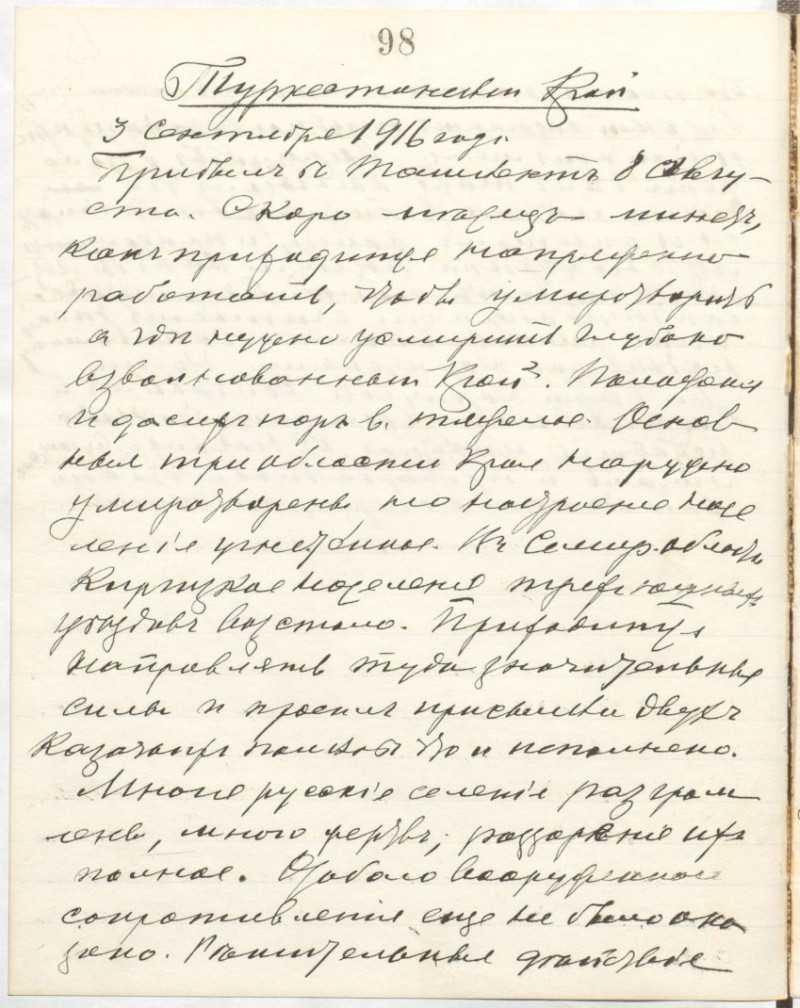 98
Туркестанскій Край
3 Сентября 1916 года.
Прибылъ въ Ташкентъ 8 Авгу-
ста. Скоро мѣсяцъ минетъ,
какъ приходится напряженно
работать, чтобы умиротворить
а гдѣ нужно усмирить глубоко
взволнованный Край. Положеніе
и до сихъ поръ в. тяжелое. Основ
ныя три области Края наружно
умиротворены но настроеніе насе
ленія угнетенное. Въ Семир. области
Киргизское населеніе трехъ южныхъ
уѣздовъ возстало. Приходится
направлять туда значительныя
силы и просилъ присылки двухъ
Казачьихъ полковъ что и исполнено.
Многіе русскіе селенія разгром
лены, много жертвъ, раззореніе ихъ
полное. Особаго вооруженнаго
сопротивленія еще не было ока
зано. Рѣшительныя дѣйствія